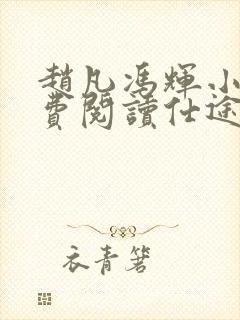 趙凡馮輝小
費閱讀仕途
衣青箬